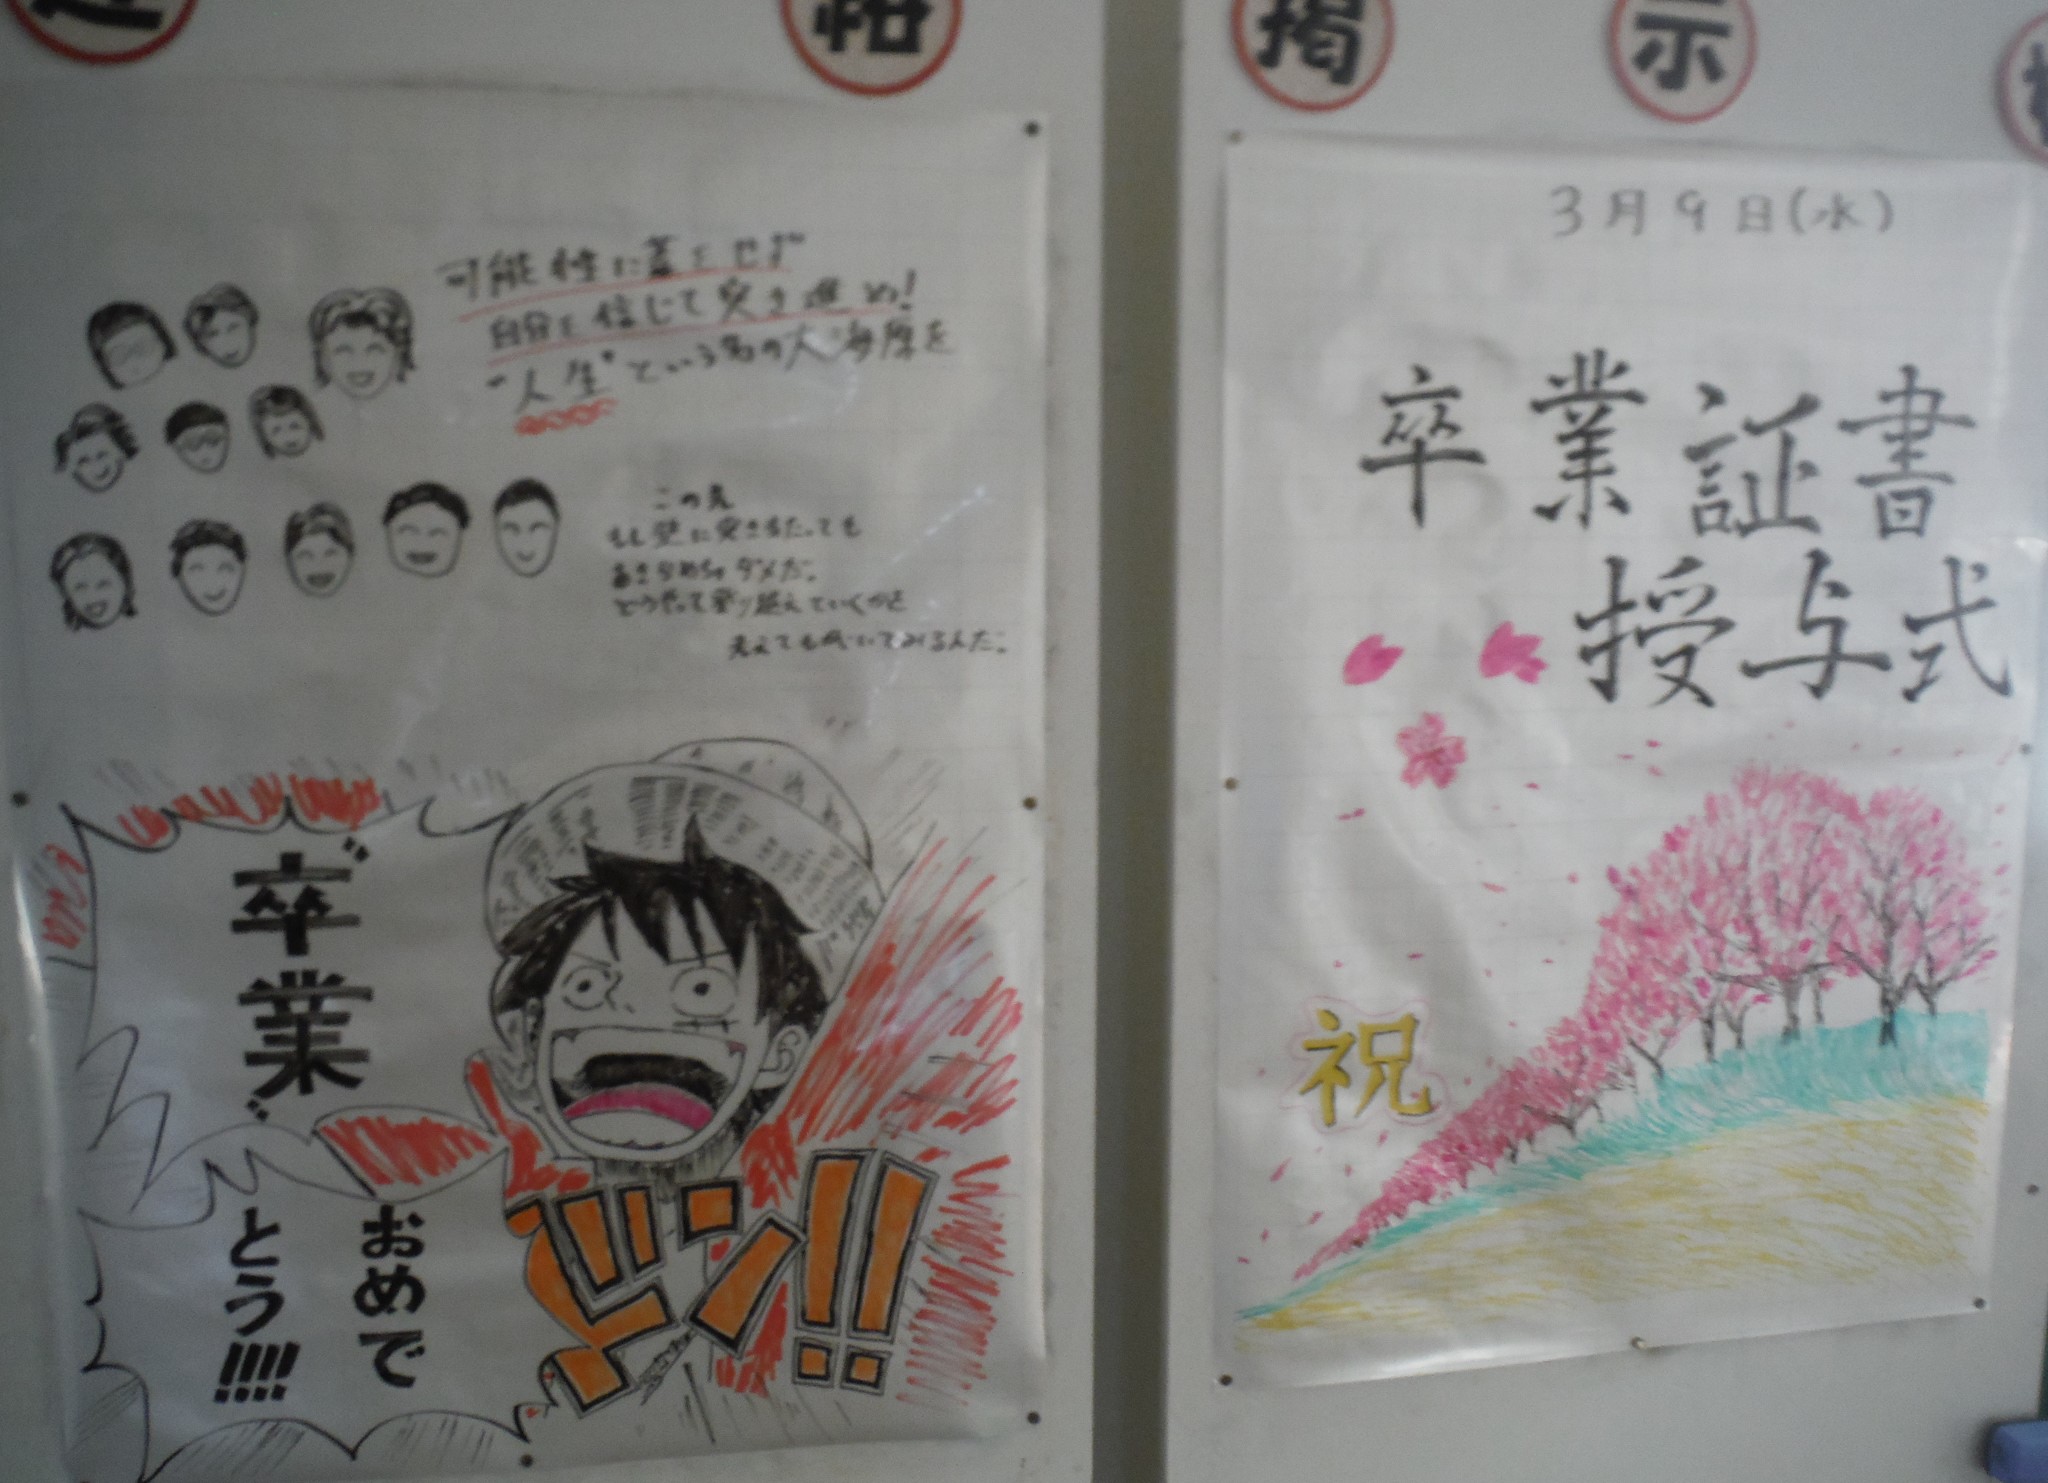 絡
掲
示
可能性に蓋をせず
自分を信じて突き進め！
“人生”という名の大海原を
この先
もし壁に突きあたっても
あきらめちゃダメだ。
どうやって乗り越えていくかを
ドン!!
“卒業”
おめで
とう!!!!
3月9日(水)
卒業証書
授与式
祝